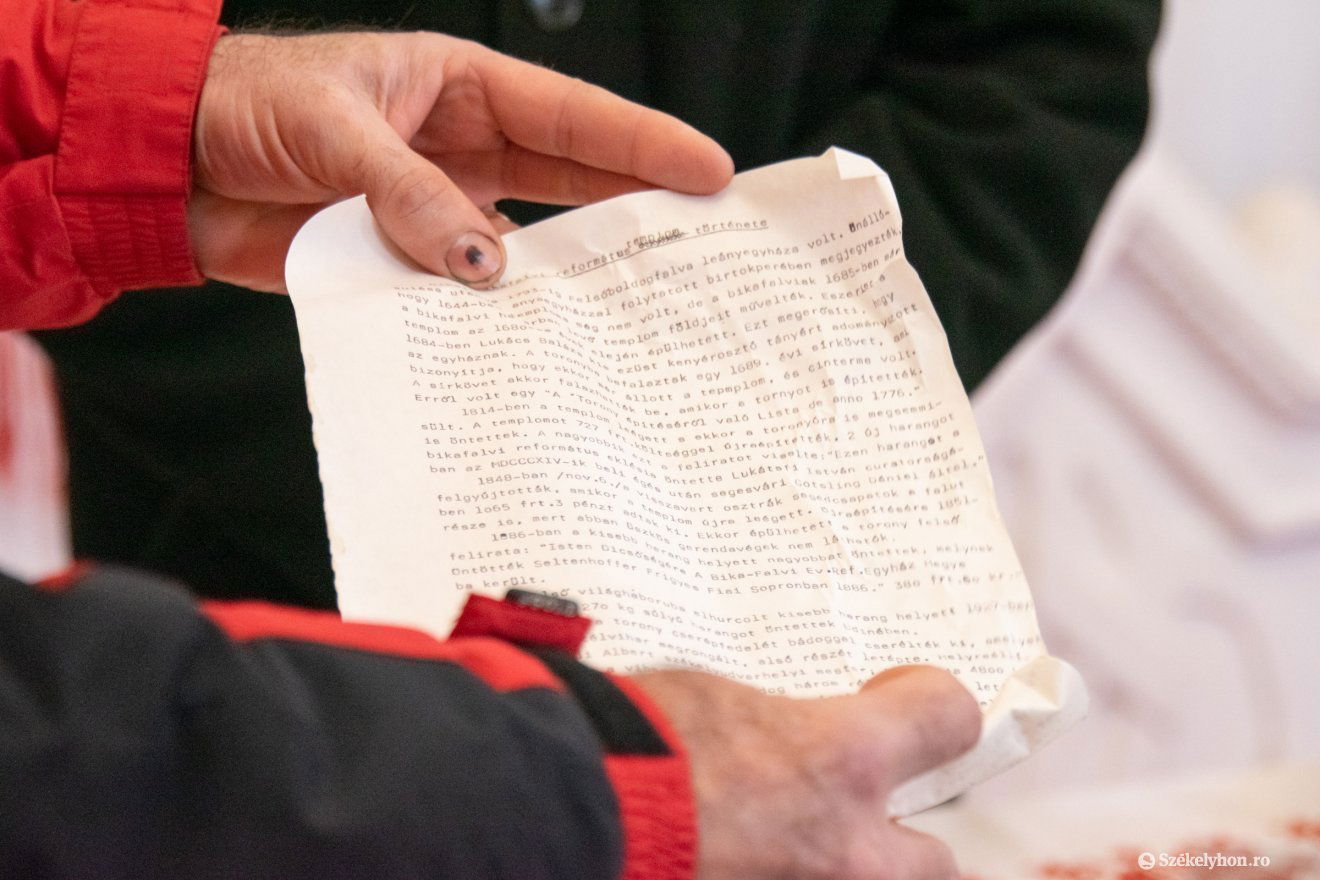 templom
falvi református története
1791-ig Felsőboldogfalva leányegyháza volt. Önálló-
anyaegyházzal folytatott birtokperében megjegyezték,
hogy 1644-ben még nem volt, de a bikafalviak 1685-ben már
a bikafalvi templom földjeit művelték. Eszerint a
templom az 168 évek elején épülhetett. Ezt megerősíti, hogy
1684-ben Lukács Balázs ezüst kenyérosztó tányért adományozott
az egyháznak. A toronyba befalaztak egy 1689. évi sírkövet, ami
bizonyítja, hogy ekkor már állott a tepmplom, és cinterme volt.
A sírkövet akkor falazhatták be, amikor a tornyot is építették.
Erről volt egy "A Torony építéséről való Lista de anno 1776."
1814-ben a templom leégett s ekkor a toronyóra is megsemmi-
sült. A templomot 727 frt. költséggel újraépítették. 2 új harangot
is öntettek. A nagyobbik ezt a feliratot viselte: "Ezen harangot a
bikafalvi református eklésia öntette Lukátsfi István curatorságá-
ban az MDCCCXIV-ik beli égés után segesvári Gotsling Dániel által."
1848-ban /nov.6./a visszavert osztrák segédcsapatok a falut
felgyújtották, amikor a templom újra leégett. Újraépítésére 1851-
ben 1o65 frt.3 pénzt adtak ki. Ekkor épülhetett a torony felső
része is, mert abban üszkös gerendavégek nem láthatók.
1886-ban a kisebb harang helyett nagyobbat öntettek, melynek
felirata: "Isten Dicsőségére A Bika-Falvi Ev.Ref.Egyház Megye
Öntötték Seltenhoffer Frigyes Fiai Sopronban 1886." 380 frt.60
ba került.
első világháboruba elhurcolt kisebb harang helyett 1927-ben
27o kg súlyú harangot öntettek
torony cserépfedelét bádoggal cserélték ki, amelyet
megrongált, alsó részét letépte.
Albert székelyudvarhelyi 4800
három
Székelyhon.ro